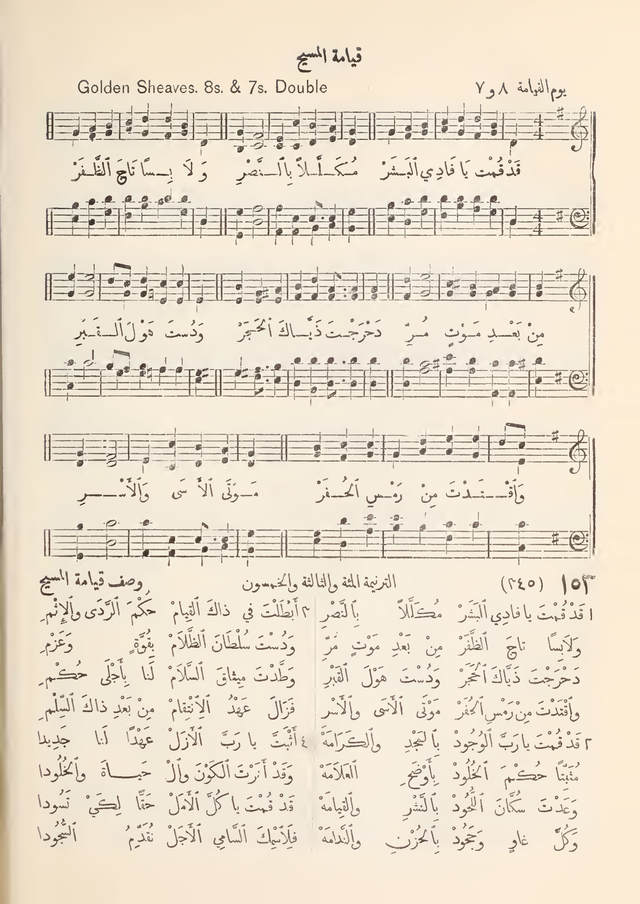 قيامة المسيح
Golden Sheaves. 8s. & 7s. Double
يوم القيامة ٨ و ٧
قَدْ قُمْتَ يَا فَادِي ٱلْبَشَرْ مُكَلَّلاً بِٱلنَّصْرِ وَلَابِسًا تَاجَ ٱلظَّفَرْ
مِنْ بَعْدِ مَوْتٍ مُرِّ دَحْرَجْتَ ذَيَّاكَ ٱلْحَجَرْ وَدُسْتَ هَوْلَ ٱلْقَبْرِ
وَٱفْتَدْتَ مِنْ رَمْسِ ٱلْحُفَرْ مَوْتَى ٱلْأَسَى وَٱلْأَسْرِ
١٥٣ (٢٤٥) الترنيمة المئة والثالثة والخمسون وصف قيامة المسيح
١ قَدْ قُمْتَ يَا فَادِي ٱلْبَشَرْ مُكَلَّلاً بِٱلنَّصْرِ ٢ أَبْطَلْتَ فِي ذَاكَ ٱلْقِيَامْ حُكْمَ ٱلرَّدَى وَٱلْإِثْمِ
وَلَابِسًا تَاجَ ٱلظَّفَرْ مِنْ بَعْدِ مَوْتٍ مُرِّ وَدُسْتَ سُلْطَانَ ٱلظَّلَامْ بِقُوَّةٍ وَعَزْمِ
دَحْرَجْتَ ذَيَّاكَ ٱلْحَجَرْ وَدُسْتَ هَوْلَ ٱلْقَبْرِ وَطَّدْتَ مِيثَاقَ ٱلسَّلَامْ لَنَا بِأَجْلَى حُكْمِ
وَٱفْتَدْتَ مِنْ رَمْسِ ٱلْحُفَرْ مَوْتَى ٱلْأَسَى وَٱلْأَسْرِ فَزَالَ عَهْدُ ٱلْٱِنْتِقَامْ مِنْ بَعْدِ ذَاكَ ٱلسِّلْمِ
٣ قَدْ قُمْتَ يَا رَبَّ ٱلْوُجُودْ بِٱلْمَجْدِ وَٱلْكَرَامَهْ ٤ أَثْبَتَّ يَا رَبَّ ٱلْأَزَلْ عَهْدًا لَنَا جَدِيدَا
مُثَبِّتًا حُكْمَ ٱلْخُلُودْ بِأَوْضَحِ ٱلْعَلَامَهْ وَقَدْ أَنَرْتَ ٱلْكَوْنَ وَٱلْ حَيَاةَ وَٱلْخُلُودَا
وَعَدْتَ سُكَّانَ ٱللُّحُودْ بِٱلنَّشْرِ وَٱلْقِيَامَهْ قَدْ قُمْتَ يَا كُلَّ ٱلْأَمَلْ حَقًّا لِكَيْ تَسُودَا
وَكُلَّ غَاوٍ وَجَحُودْ بِٱلْحُزْنِ وَٱلنَّدَامَهْ فَلِٱسْمِكَ ٱلسَّامِي ٱلْأَجَلّْ نُقَدِّمُ ٱلسُّجُودَا